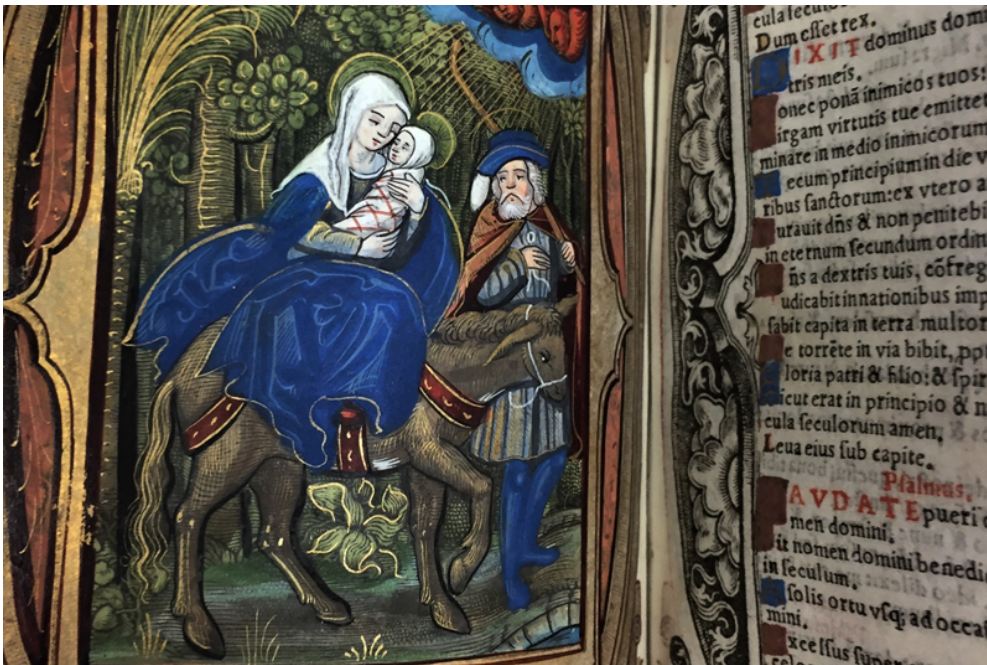 cula seculo
Dum esset rex.
DIXIT dominus dom
tris meis.
onec ponã inimicos tuos:
irgam virtutis tue emittet
minare in medio inimicorum
ecum principium in die v
ribus sanctorum: ex vtero a
urauit dñs & non penitebi
in eternum secundum ordin
ñs a dextris tuis, cõfreg
udicabit in nationibus imp
sabit capita in terra multor
e torrẽte in via bibit, ppt
loria patri & filio: & spir
icut erat in principio & n
cula seculorum amen.
Leua eius sub capite.
Psalmus.
LAVDATE pueri
men domini.
it nomen domini benedi
in seculum.
solis ortu vsq; ad occa
mini.
xcelsus super